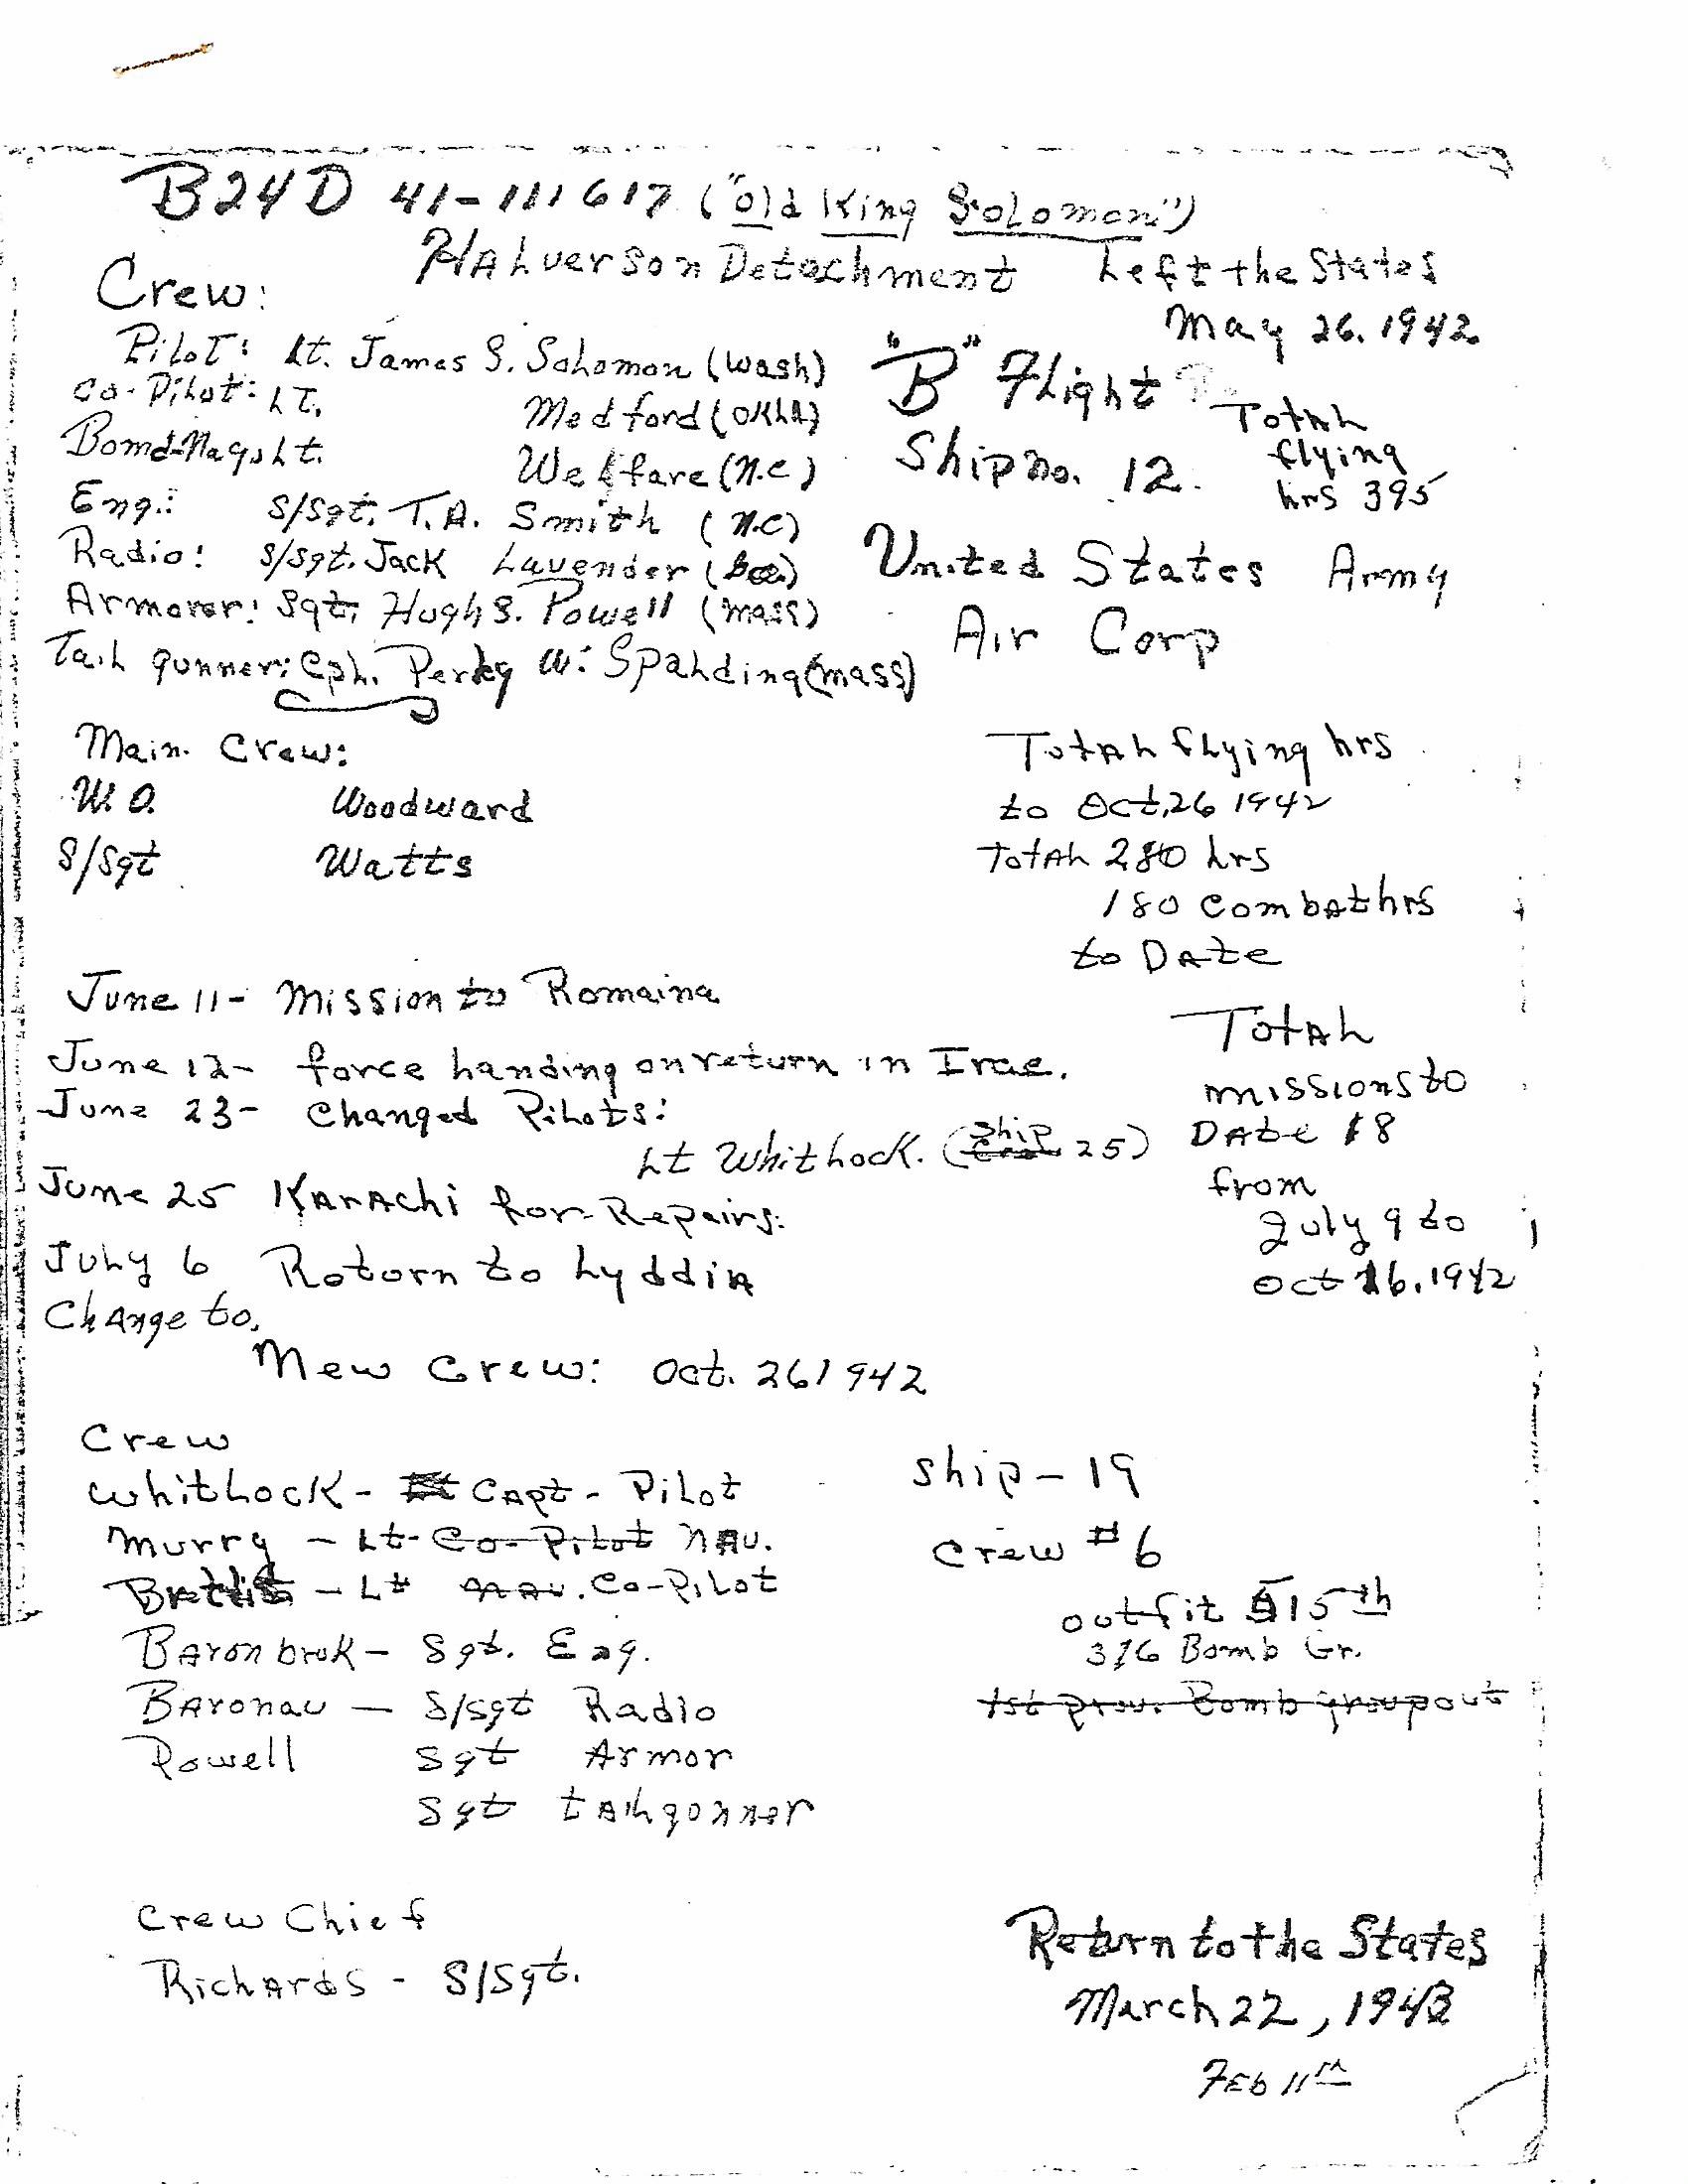 B24D 41-111617 ("Old King Solomon")
Halverson Detachment Left the States
May 26. 1942
Crew:
Pilot: Lt. James S. Solomon (Wash)
Co-Pilot: Lt. Medford (Okla)
Bomd-Nag Lt. Welfare (N.C)
Eng.: S/Sgt. T.A. Smith (N.C)
Radio: S/Sgt. Jack Lavender
Armorer: Sgt. Hugh S. Powell (Mass)
Tail gunner: Cpl. Perky W. Spalding (Mass)
"B" Flight
Ship no. 12.
Total
flying
hrs 395
United States Army
Air Corp
Main. Crew:
W.O. Woodward
S/Sgt Watts
Total flying hrs
to Oct. 26 1942
Total 280 hrs
180 combat hrs
to Date
June 11- Mission to Romaina
June 12- force landing on return in Irae.
June 23- Changed Pilots:
Lt Whitlock. (Ship 25)
June 25 Karachi for Repairs:
July 6 Roturn to Lyddia
Change to.
Total
missions to
Date 18
from
July 9 to
Oct 16. 1942
New Crew: Oct. 26 1942
Crew
Whitlock - Capt - Pilot
Murry - Lt - Co-Pilot Nav.
- Lt Nav. Co-Pilot
Baronbrok - Sgt. Eng.
Baronau - S/Sgt Radio
Powell Sgt Armor
Sgt tailgonner
Ship - 19
Crew #6
outfit 515th
376 Bomb Gr.
1st prov. Bomb group out
Crew Chief
Richards - S/Sgt.
Return to the States
March 22, 1943
Feb 11th